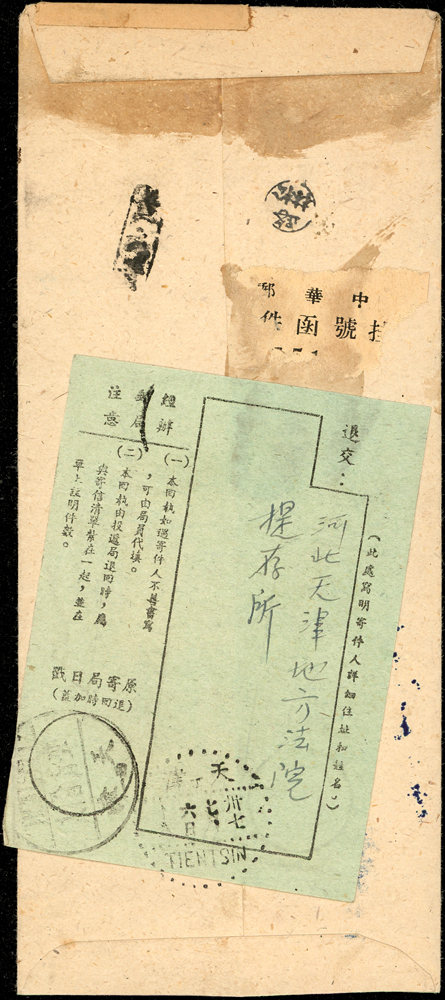 中華郵
掛號函件
退交：
（此處寫明寄件人詳細住址和姓名）
河北天津地方法院
提存所
經辦郵局注意
（一）本回執如遇寄件人不善書寫
，可由局員代填。
（二）本回執由投遞局退回時，應
與寄信清單紮在一起，並在
單上註明件數。
原寄局日戳
（退回時加蓋）
天
卅七
七
六日
TIENTSIN